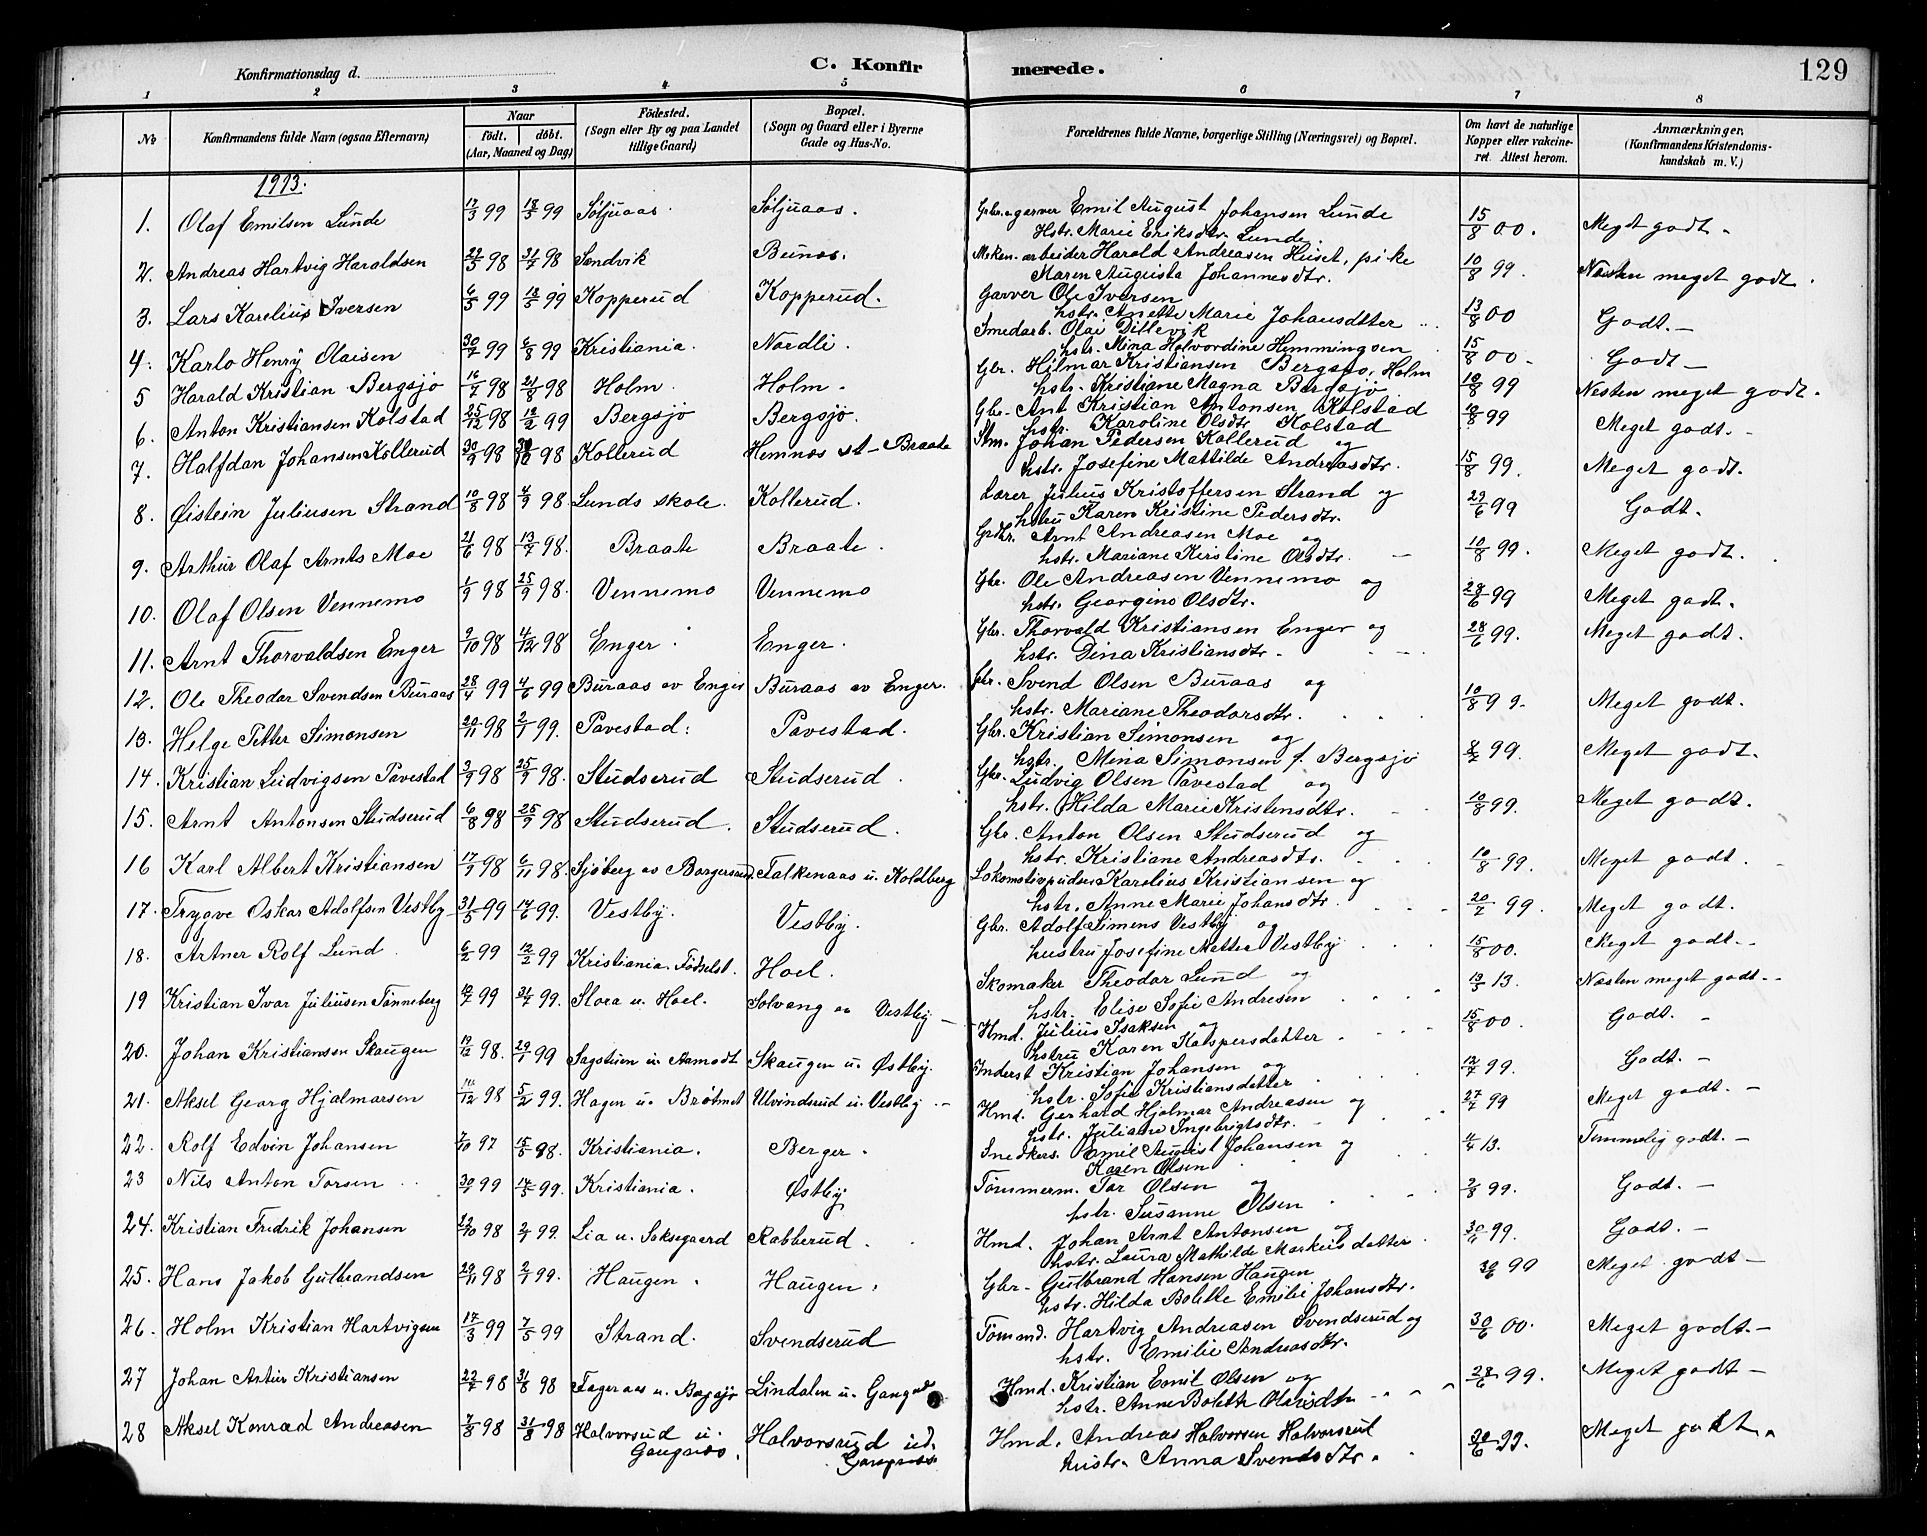 129
C. Konfirmerede.
Konfirmationsdag d.
1 2 3 4 5 6 7 8
No Konfirmandens fulde Navn (ogsaa Efternavn) Naar født. døbt. (Aar, Maaned og Dag) Fødested. (Sogn eller By og paa Landet tillige Gaard) Bopæl. (Sogn og Gaard eller i Byerne Gade og Hus-No. Forældrenes fulde Navne, borgerlige Stilling (Næringsvei) og Bopæl. Om havt de naturlige Kopper eller vakcineret. Attest herom. Anmærkninger. (Konfirmandens Kristendomskundskab m. V.)
1913.
1. Olaf Emilsen Lunde 17/3 99 18/5 99 Søljuaas. Søljuaas. Gbr. garver Emil August Johansen Lunde 15/8 00. Meget godt.
Hstr. Marie Eriksdtr. Lunde.
2. Andreas Hartvig Haraldsen 22/5 98 31/7 98 Sandvik Bunes. Meken. arbeider Harald Andreasen Huset, pike 10/8 99. Næsten meget godt.
Maren Augusta Johannesdtr.
3. Lars Karelius Iversen 6/3 99 18/5 99 Kopperud Kopperud. Garver Ole Iversen 13/8 00 Godt.
hstr. Anette Marie Johansdtter
4. Karlo Henry Olaisen 30/7 99 6/8 99 Kristiania. Nordli. Smedarb. Olai Dillevik 15/8 00 Godt
hstr. Mina Halvordine Hemmingsen
5 Harald Kristian Bergsjø 16/7 98 21/8 98 Holm. Holm. Gbr. Hilmar Kristiansen Bergsjø, Holm 10/8 99 Nesten meget godt.
hstr. Kristiane Magna Bergsjø
6. Anton Kristiansen Kolstad 25/12 98 12/2 99 Bergsjø Bergsjø. Gbr. Ant Kristian Antonsen Kolstad 10/8 99 Meget godt.
hstr. Karoline Olsdtr. Kolstad
7. Halfdan Johansen Kollerud 30/9 98 98 Kollerud Hemnes st Braate Stm. Johan Pedersen Kollerud og 15/8 99. Meget godt.
hstr. Josefine Mathilde Andreasdtr.
8. Øistein Juliusen Strand 10/8 98 4/9 98 Lunds skole. Kollerud. Lærer Julius Kristoffersen Strand og 29/6 99 Godt.
hstru Karen Kristine Pedersdtr.
9. Arthur Olaf Arnts Moe 21/6 98 17/7 98. Braate Braate. Grdbr. Arnt Andreasen Moe og 10/8 99. Meget godt.
hstr. Mariane Kristine Olsdtr.
10. Olaf Olsen Vennemo 1/9 98 25/9 98. Vennemo Vennemo Gbr. Ole Andreasen Vennemo og 28/6 99 Meget godt.
hstr. Georgine Olsdtr.
11. Arnt Thorvaldsen Enger 2/10 98 4/12 98 Enger Enger. Gbr. Thorvald Kristiansen Enger og 28/6 99. Meget godt.
hstr. Dina Kristiansdtr.
12. Ole Theodor Svendsen Buraas 28/4 99 4/6 99 Buraas av Enger Buraas av Enger. Gbr. Svend Olsen Buraas og 10/8 99. Meget godt.
hstr. Mariane Theodorsdtr.
13. Helge Petter Simonsen 20/11 98 2/1 99. Pavestad. Pavestad. Gbr. Kristian Simonsen og 8/2 99. Meget godt.
hstr. Mina Simonsen f. Bergsjø
14. Kristian Ludvigsen Pavestad 3/9 98 25/9 98. Studserud Studserud. Gbr. Ludvig Olsen Pavestad og 10/8 99. Meget godt.
hstr. Hilda Marie Kristensdtr.
15. Arnt Antonsen Studserud 6/8 98 25/9 98 Studserud. Studserud. Gbr. Anton Olsen Studserud og 10/8 99. Meget godt.
hstr. Kristiane Andreasdtr.
16 Karl Albert Kristiansen 17/9 98 6/11 98. Sjøberg av Borgersrud. Falkenaas u. Holdberg Lokomotivpudser Karelius Kristiansen og 20/7 99. Meget godt.
hstr. Anne Marie Johansdtr.
17. Trygve Oskar Adolfsen Vestby 31/5 99 14/6 99. Vestby. Vestby. Gbr. Adolf Simens Vestby og 15/8 00. Meget godt.
hustru Josefine Mette Vestby
18. Artner Rolf Lund. 6/2 99 12/2 99 Kristiania. Fødselst. Hoel. Skomaker Theodor Lund og 13/3 13. Næsten meget godt.
hstr. Elise Sofie Andresen
19 Kristian Ivar Juliusen Tønneberg 12/7 99 31/7 99. Slora u. Hoel. Solvang av Vestby Hmd. Julius Isaksen og 15/8 00. Godt.
hstru Karen Kaspersdatter
20. Johan Kristiansen Skaugen 19/12 98. 29/1 99 Sagstuen u. Aamodt Skaugen u. Østby. Inderst Kristian Johansen og 12/7 99. Godt.
hstr. Sofie Kristiansdatter
21. Aksel Georg Hjalmarsen 14/12 98 5/2 99. Hagen u. Brøtmet Ulvinderud u. Vestby. Hmd. Gerhard Hjalmar Andreasen og 27/7 99 Meget godt.
hstr. Juliane Ingebrigtsdtr.
22. Rolf Edvin Johansen 7/10 97 15/5 98. Kristiania. Berger. Snedkers. Emil August Johansen og 4/4 13. Temmelig godt.
Karen Olsen
23 Nils Anton Torsen 30/1 99 14/5 99. Kristiania. Østby Tømmerm. Tor Olsen og 2/8 99. Godt.
hstr. Susanne Olsen
24. Kristian Fredrik Johansen 22/10 98 2/1 99. Lia u. Soksegaard Rabberud. Hmd. Johan Arnt Antonsen og 30/11 99. Godt.
hstr. Laura Mathilde Markusdatter
25. Hans Jakob Gulbrandsen 29/11 98 2/1 99. Haugen. Haugen. Gbr. Gulbrand Hansen Haugen 30/6 99 Meget godt
hstr. Hilda Bolette Emilie Johansdtr.
26. Holm Kristian Hartvigsen 17/3 99 7/5 99 Strand. Svendserud Tømmd. Hartvig Andreasen Svendserud og 30/6 00. Meget godt.
hstr. Emilie Andreasdtr.
27 Johan Artur Kristiansen 22/7 98 31/8 98 Fageraas u. Bergsjø Lindalen u. Gangnes Hmd. Kristian Emil Olsen og 28/6 99. Meget godt
hstr. Anne Bolette
28 Aksel Konrad Andreasen 7/8 98 31/8 98 Halvorsrud u. Gangnæs. Halvorsrud ud. Gangnæs Hmd. Andreas Halvorsen Halvorsrud 30/6 99. Meget godt.
hustr. Anna Svendsdtr.